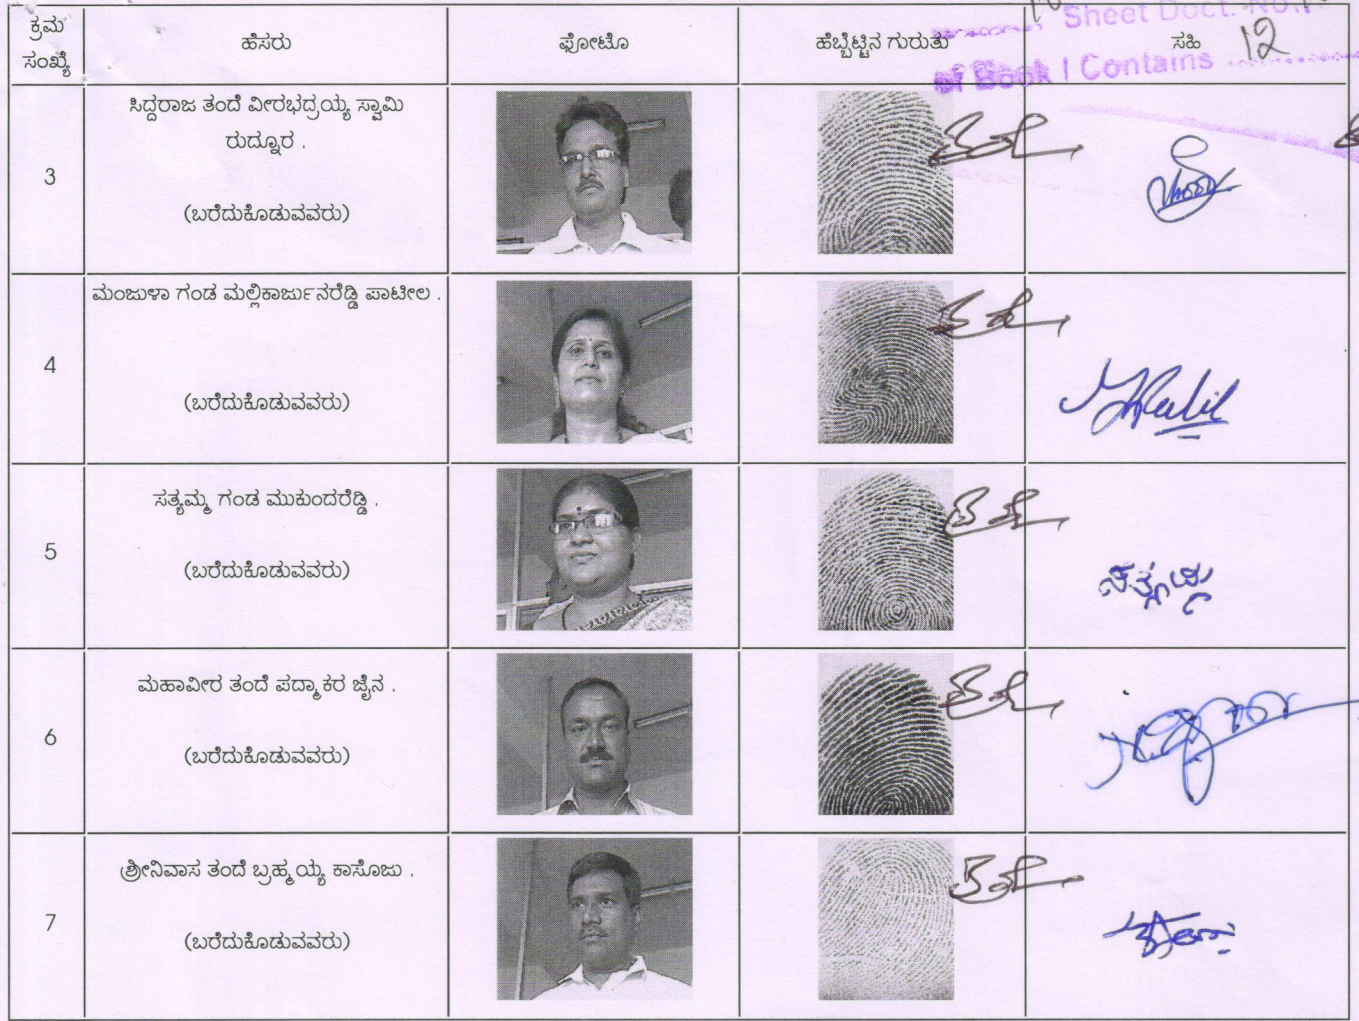 Sheet Doct. No.
of Book I Contains 12
ಕ್ರಮ ಸಂಖ್ಯೆ ಹೆಸರು ಫೋಟೊ ಹೆಬ್ಬೆಟ್ಟಿನ ಗುರುತು ಸಹಿ
ಸಿದ್ದರಾಜ ತಂದೆ ವೀರಭದ್ರಯ್ಯ ಸ್ವಾಮಿ
ರುದ್ನೂರ .
3
(ಬರೆದುಕೊಡುವವರು)
ಮಂಜುಳಾ ಗಂಡ ಮಲ್ಲಿಕಾರ್ಜುನರೆಡ್ಡಿ ಪಾಟೀಲ .
4
(ಬರೆದುಕೊಡುವವರು)
ಸತ್ಯಮ್ಮ ಗಂಡ ಮುಕುಂದರೆಡ್ಡಿ .
5
(ಬರೆದುಕೊಡುವವರು)
ಮಹಾವೀರ ತಂದೆ ಪದ್ಮಾಕರ ಜೈನ .
6
(ಬರೆದುಕೊಡುವವರು)
ಶ್ರೀನಿವಾಸ ತಂದೆ ಬ್ರಹ್ಮಯ್ಯ ಕಾಸೊಜು .
7
(ಬರೆದುಕೊಡುವವರು)